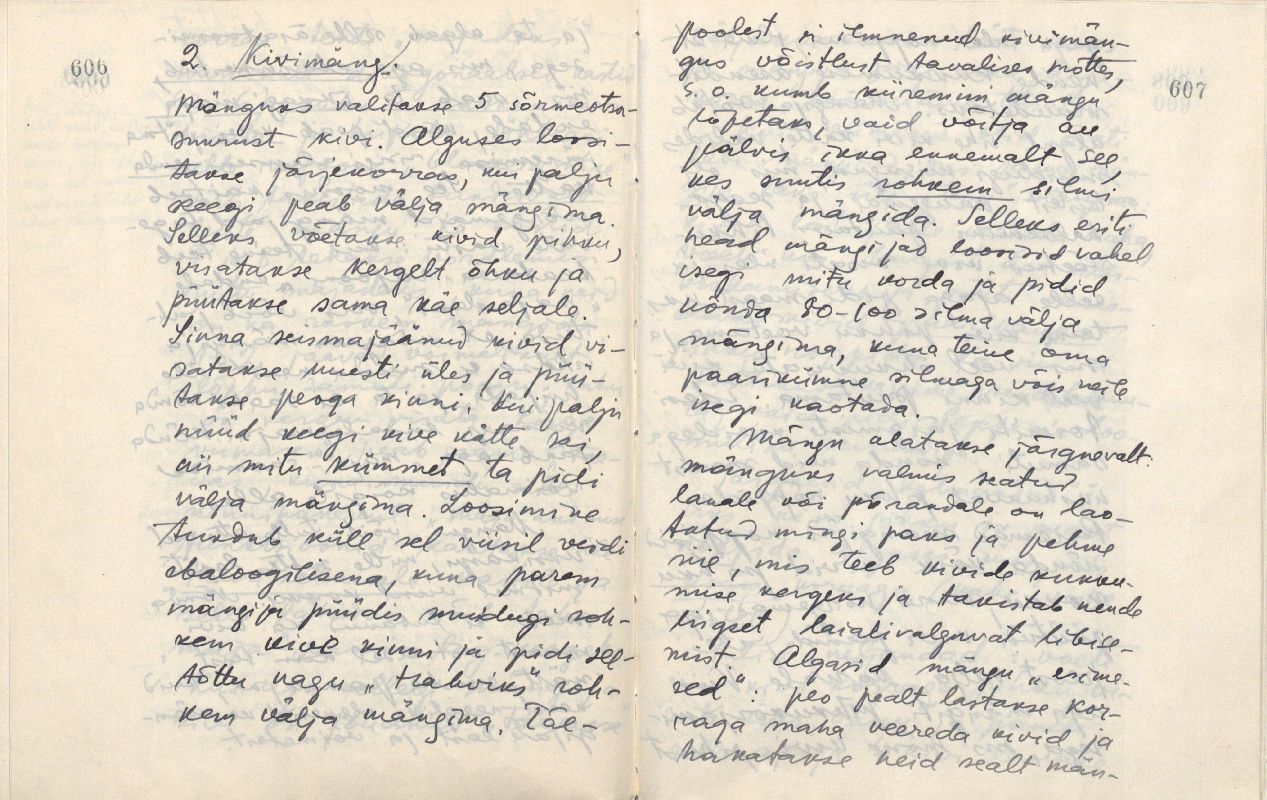 606
2. Kivimäng.
Mänguks valitakse 5 sõrmeotsa-
suurust kivi. Alguses loosi-
takse järjekorras, kui palju
keegi peab välja mängima.
Selleks võetakse kivid pihku,
visatakse kergelt õhku ja
püütakse sama käe seljale.
Sinna seismajäänud kivid vi-
satakse uuesti üles ja püü-
takse peoga kinni. Kui palju
nüüd keegi kive kätte sai,
nii mitu kümmet ta pidi
välja mängima. Loosimine
tundub küll sel viisil veidi
ebaloogilisena, kuna parem
mängija püüdis muidugi roh-
kem kive kinni ja pidi see-
tõttu nagu „trahviks" roh-
kem välja mängima. Täe-
607
poolest ei ilmnenud kivimän-
gus võistlust tavalises mõttes,
s.o. kumb kiiremini mängu
lõpetaks, vaid võitja au
pälvis ikka ennemalt see,
kes suutis rohkem silmi
välja mängida. Selleks eriti
head mängijad loosisid vahel
isegi mitu korda ja pidid
nõnda 80-100 silma välja
mängima, kuna teine oma
paarikümne silmaga võis neile
isegi kaotada.
Mängu alatakse järgnevalt:
mänguks valmis seatud
lauale või põrandale on lao-
tatud mingi paks ja pehme
riie, mis teeb kivide kukku-
mise kergeks ja takistab nende
liigset laialivalguvat libise-
mist. Algasid mängu „esime-
sed": peo pealt lastakse kor-
raga maha veereda kivid ja
hakatakse neid sealt män-